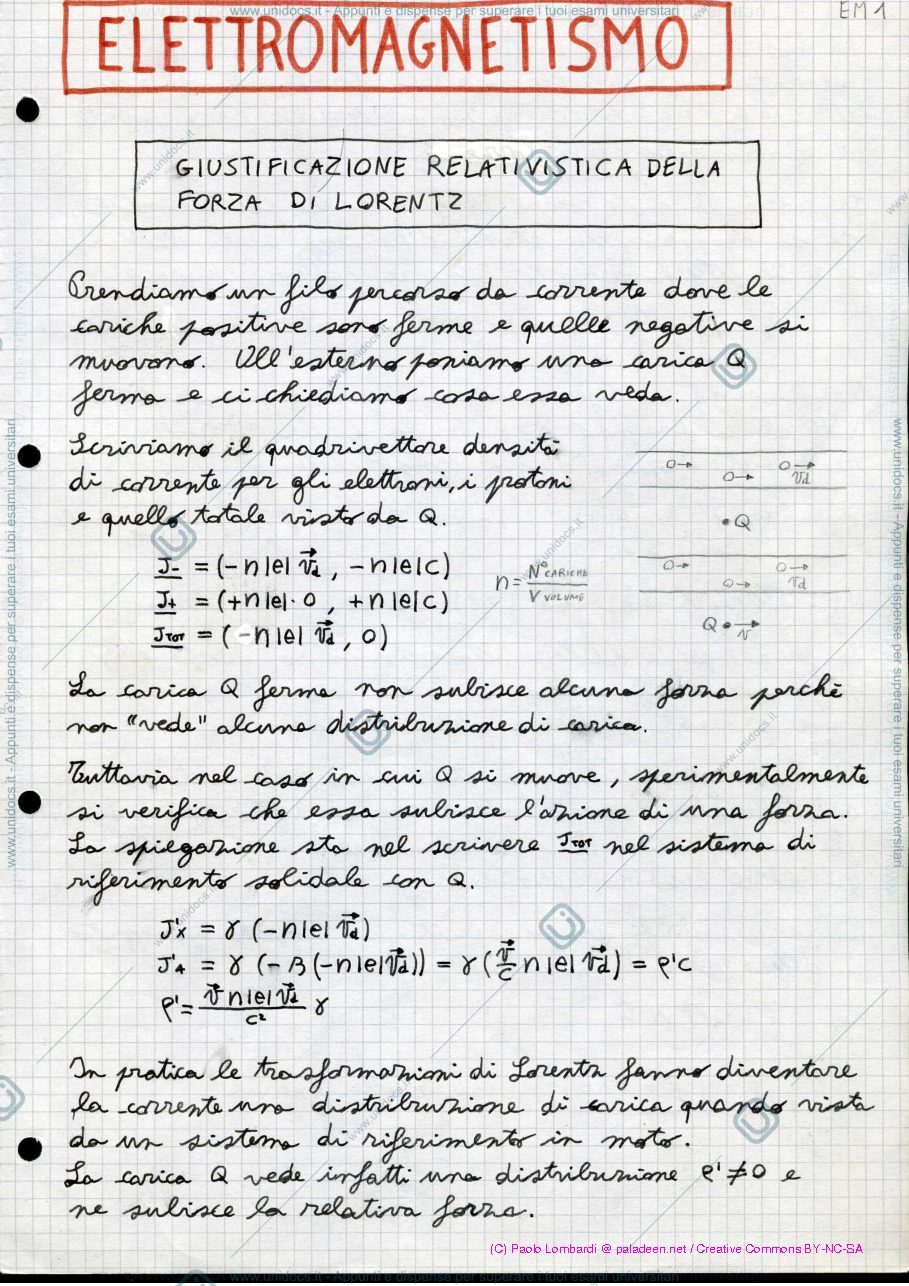 www.unidocs.it - Appunti e dispense per superare i tuoi esami universitari
EM 1
ELETTROMAGNETISMO
GIUSTIFICAZIONE RELATIVISTICA DELLA
FORZA DI LORENTZ
Prendiamo un filo percorso da corrente dove le
cariche positive sono ferme e quelle negative si
muovono. All'esterno poniamo una carica Q
ferma e ci chiediamo cosa essa veda.
Scriviamo il quadrivettore densità
di corrente per gli elettroni, i protoni
e quello totale visto da Q.
J₋ = (-n|e| v⃗d , -n|e|c)
J₊ = (+n|e|·0 , +n|e|c)
JTOT = (-n|e| v⃗d , 0)
n = N° CARICHE / V VOLUME
vd
Q
vd
Q v⃗
La carica Q ferma non subisce alcuna forza perchè
non "vede" alcuna distribuzione di carica.
Tuttavia nel caso in cui Q si muove, sperimentalmente
si verifica che essa subisce l'azione di una forza.
La spiegazione sta nel scrivere JTOT nel sistema di
riferimento solidale con Q.
J'x = γ (-n|e| v⃗d)
J'4 = γ (-β (-n|e|v⃗d)) = γ (v⃗/c n|e| v⃗d) = ρ'c
ρ' = v⃗ n|e| v⃗d / c² γ
In pratica le trasformazioni di Lorentz fanno diventare
la corrente una distribuzione di carica quando vista
da un sistema di riferimento in moto.
La carica Q vede infatti una distribuzione ρ' ≠ 0 e
ne subisce la relativa forza.
(C) Paolo Lombardi @ paladeen.net / Creative Commons BY-NC-SA
www.unidocs.it - Appunti e dispense per superare i tuoi esami universitari
www.unidocs.it - Appunti e dispense per superare i tuoi esami universitari
www.unidocs.it - Appunti e dispense per superare i tuoi esami universitari